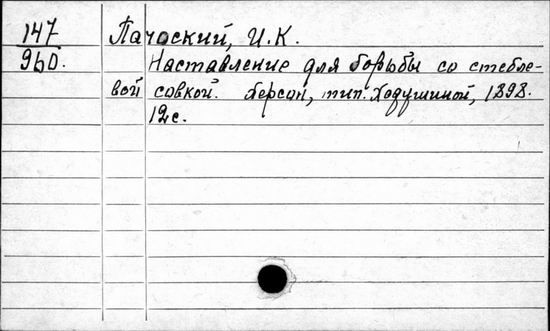 147 Пачоский, И.К.
960. Наставление для борьбы со стебле-
вой совкой. Херсон, тип. Ходушиной, 1898.
12с.